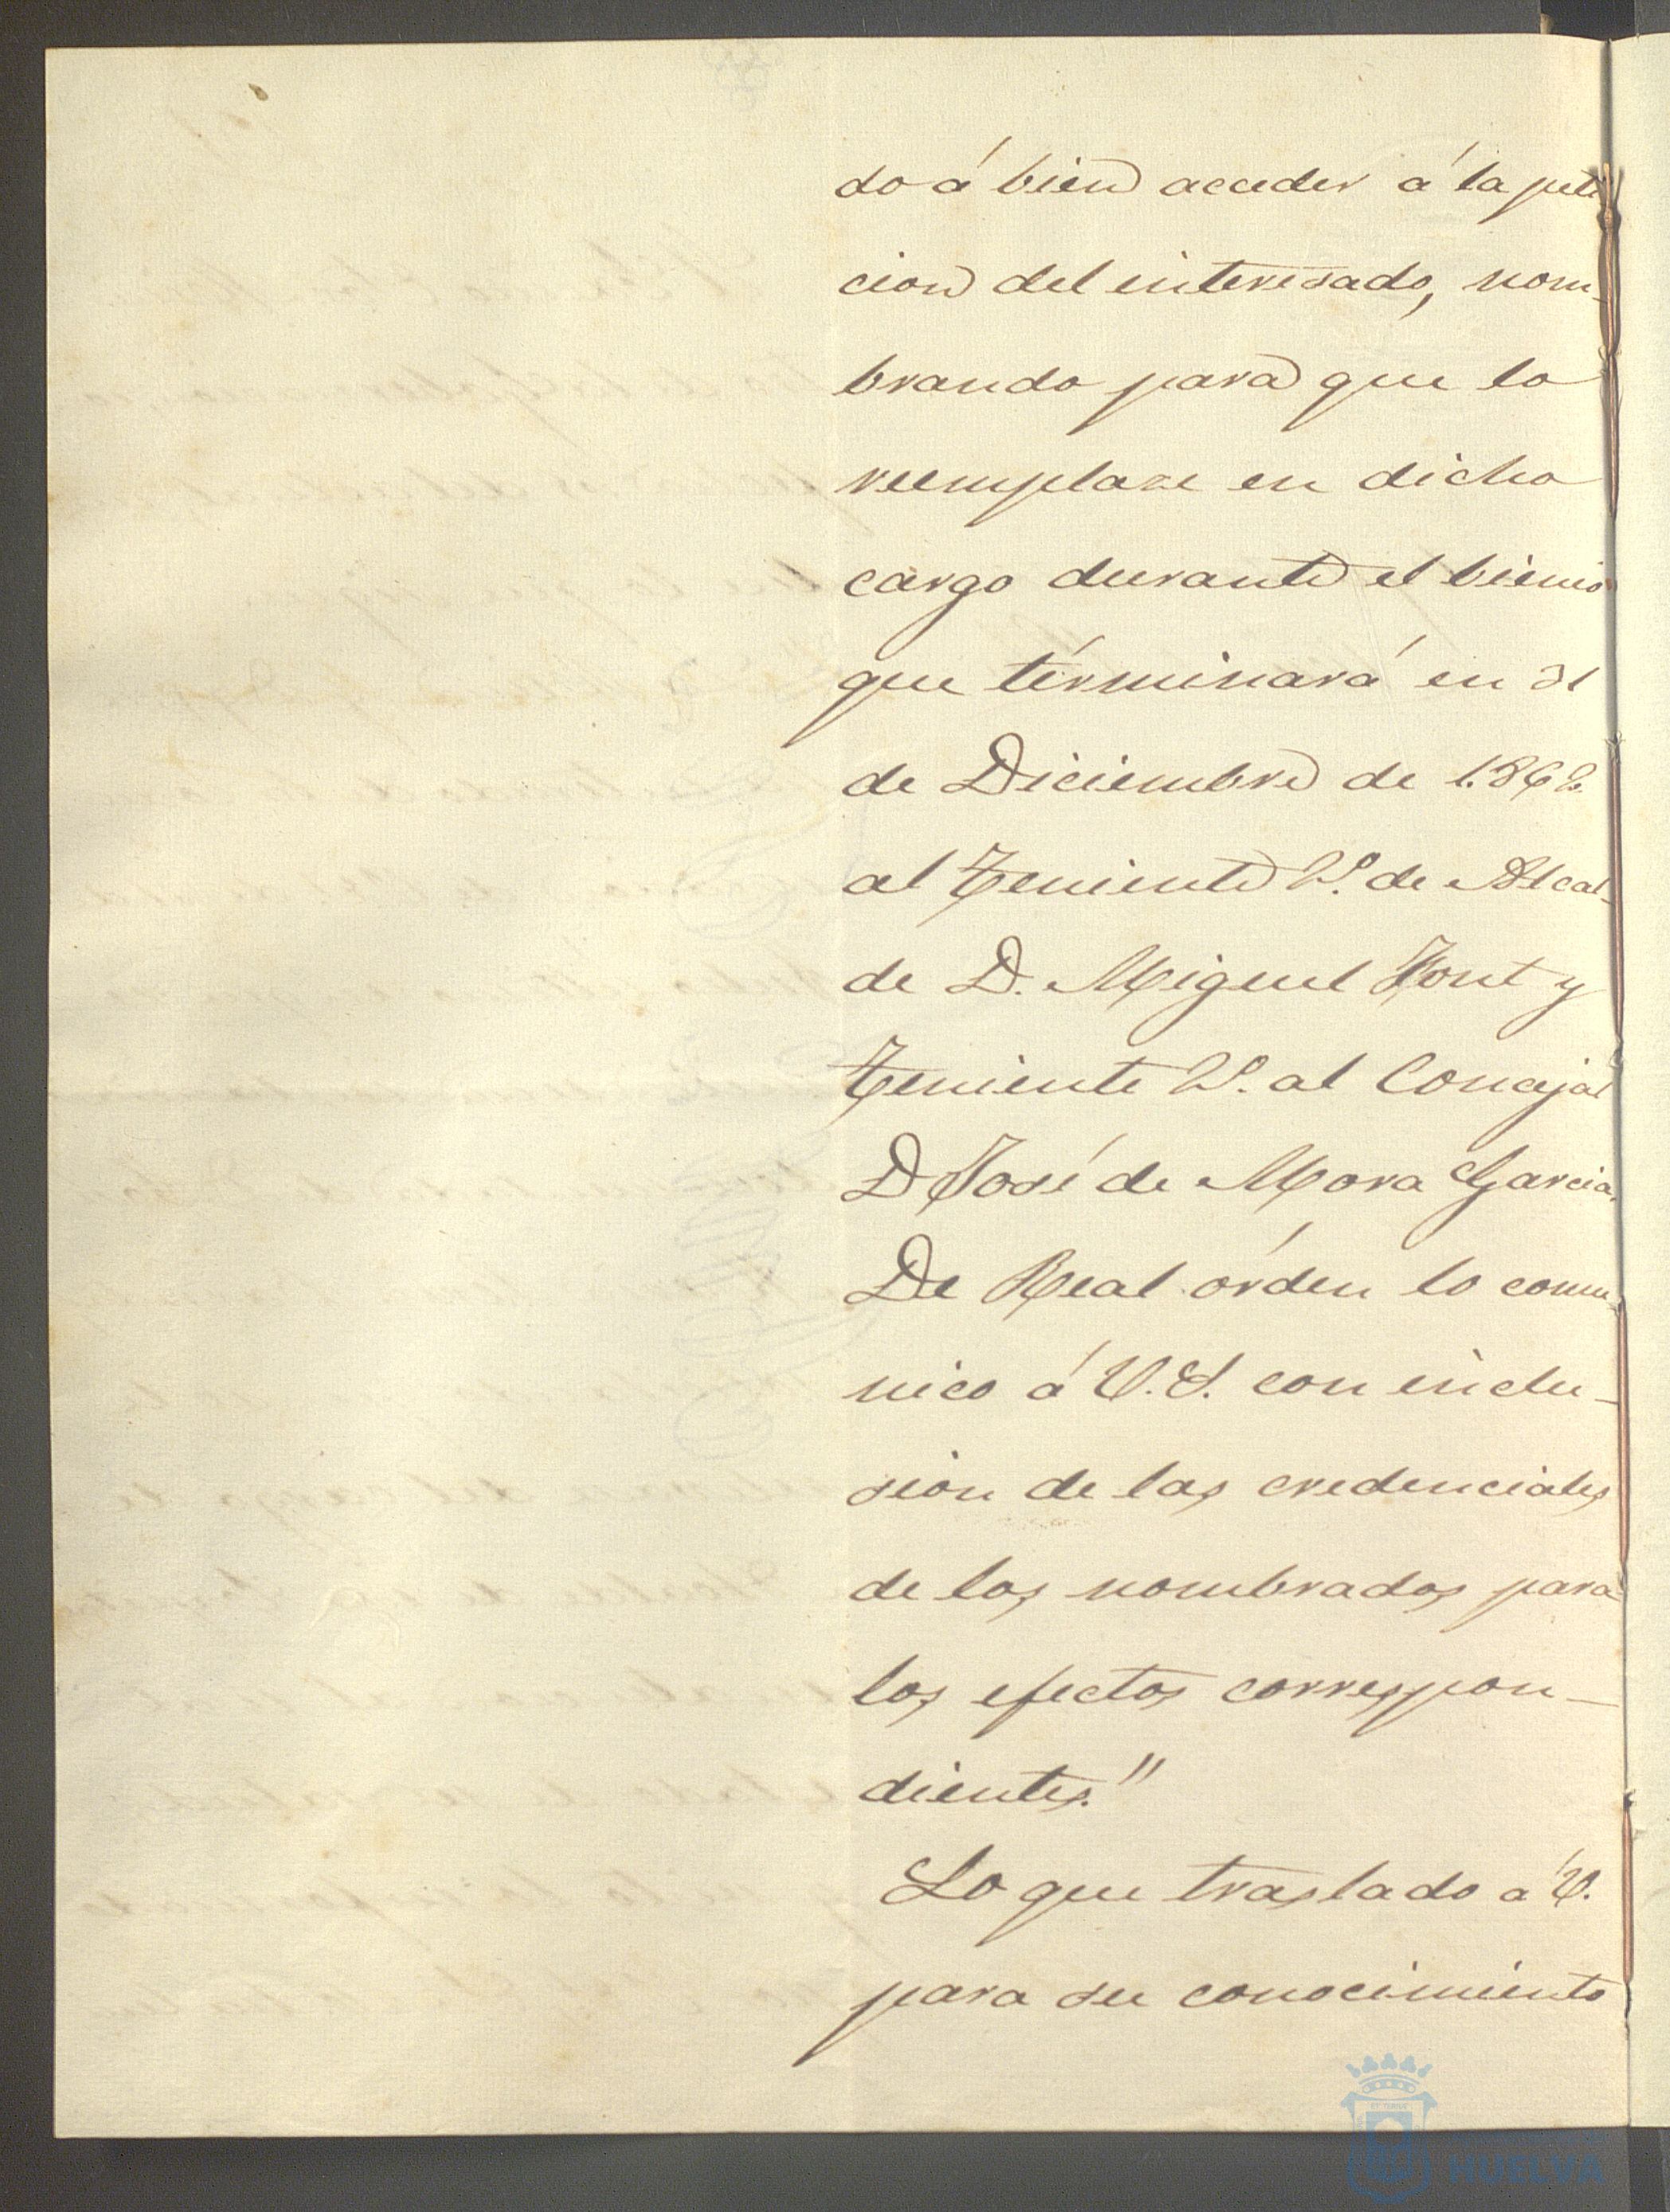 do á bien acceder á la peti
cion del interesado, nom-
brando para que lo
reemplaze en dicho
cargo durante el bienio
que términará en 31
de Diciembre de 1.868.
al Teniente 2º. de Alcal-
de D. Miguel Font y
Teniente 2º. al Concejal
D José de Mora Garcia.
De Real órden lo comu-
nico á V.S. con inclu-
sion de las credenciales
de los nombrados para
los efectos correspon-
dientes."
Lo que traslado á V.
para su conocimiento
HUELVA